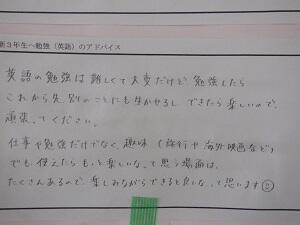 新3年生へ勉強（英語）のアドバイス
英語の勉強は難しくて大変だけど、勉強したら
これから先、別のことにも生かせるし、できたら楽しいので、
頑張ってください。
仕事や勉強だけでなく、趣味（旅行や海外映画など）
でも使えたらもっと楽しいな、って思う場面は、
たくさんあるので、楽しみながらできると良いな、って思います